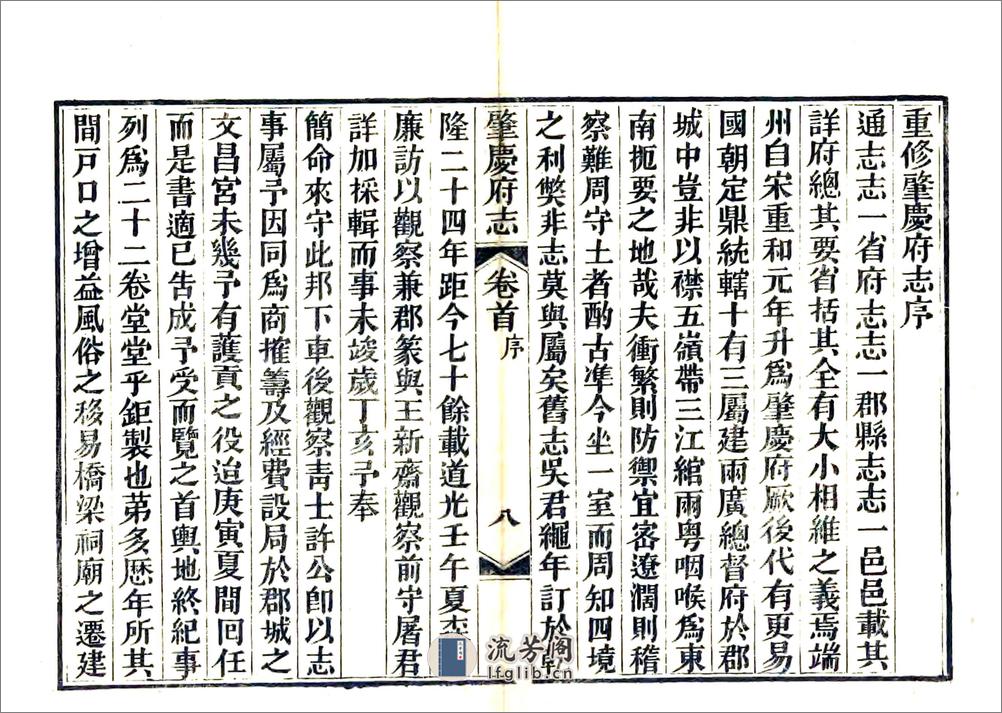 重修肇慶府志序
通志志一省府志志一郡縣志志一邑邑載其
詳府總其要省括其全有大小相維之義焉端
州自宋重和元年升爲肇慶府厥後代有更易
國朝定鼎統轄十有三屬建兩廣總督府於郡
城中豈非以襟五嶺帶三江綰兩粵咽喉爲東
南扼要之地哉夫衝繁則防禦宜密遼濶則稽
察難周守土者酌古準今坐一室而周知四境
之利弊非志莫與屬矣舊志吳君繩年訂於乾
肇慶府志 卷首 序 八
隆二十四年距今七十餘載道光壬午夏
廉訪以觀察兼郡篆與王新齋觀察前守屠君
詳加採輯而事未竣歲丁亥予奉
簡命來守此邦下車後觀察靑士許公卽以志
事屬予因同爲商搉籌及經費設局於郡城之
文昌宮未幾予有護貢之役迨庚寅夏間回任
而是書適已告成予受而覽之首輿地終紀事
列爲二十二卷堂堂乎鉅製也第多歷年所其
間戸口之增益風俗之移易橋梁祠廟之遷建
流芳阁
lfglib.cn